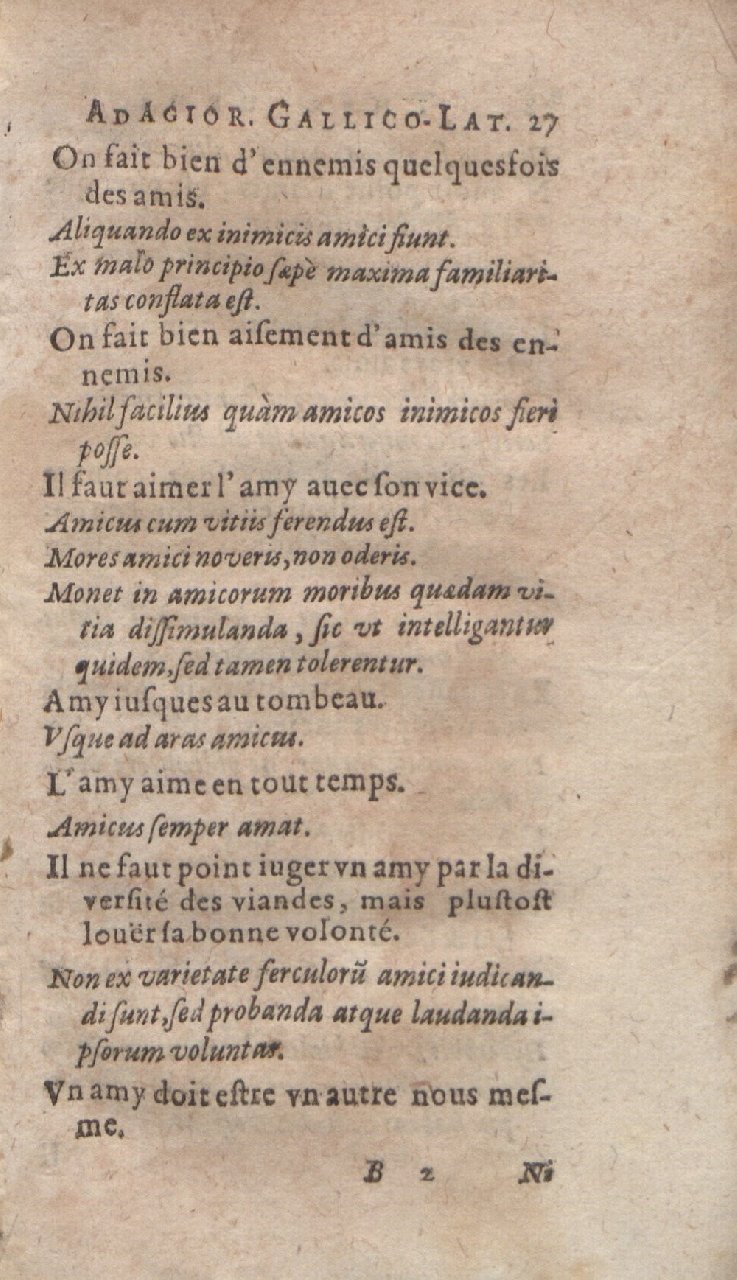 ADAGIOR. GALLICO-LAT. 27
On fait bien d'ennemis quelquesfois
des amis.
Aliquando ex inimicis amici fiunt.
Ex malo principio sæpè maxima familiari-
tas conflata eſt.
On fait bien aiſement d'amis des en-
nemis.
Nihil facilius quàm amicos inimicos fieri
poſſe.
Il faut aimer l'amy auec ſon vice.
Amicus cum vitiis ferendus eſt.
Mores amici noveris, non oderis.
Monet in amicorum moribus quædam vi-
tia diſſimulanda, ſic vt intelligantur
quidem, ſed tamen tolerentur.
Amy iuſques au tombeau.
Vſque ad aras amicus.
L'amy aime en tout temps.
Amicus ſemper amat.
Il ne faut point iuger vn amy par la di-
verſité des viandes, mais pluſtoſt
louër ſa bonne volonté.
Non ex varietate ferculorũ amici iudican-
di ſunt, ſed probanda atque laudanda i-
pſorum voluntas.
Vn amy doit eſtre vn autre nous meſ-
me.
B 2 Ni